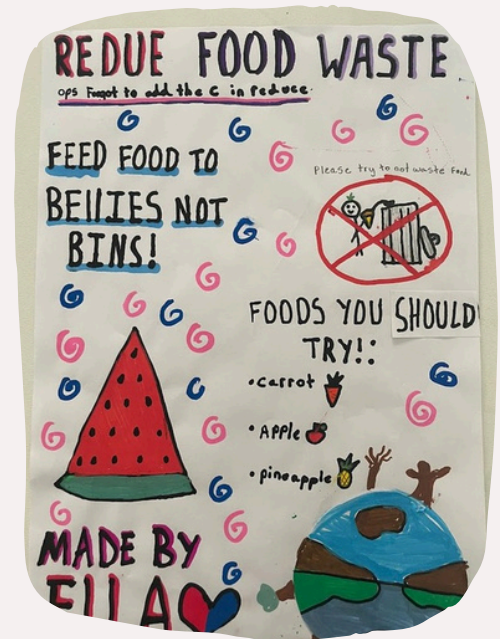 REDUE FOOD WASTE
ops Forgot to add the c in reduce.
FEED FOOD TO
BEllIES NOT
BINS!
Please try to not waste Food
FOODS YOU SHOULD
TRY!:
•carrot
•Apple
•pineapple
MADE BY
EllA